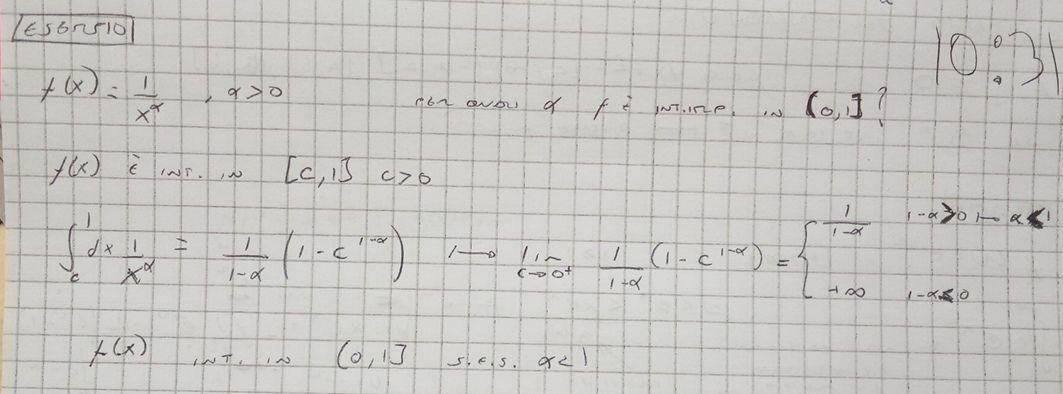 ESERCIZIO
f(x) = 1/x^α , α>0 PER QUALI α f È INT. IMP. IN (0,1]?
f(x) È INT. IN [c,1] c>0
∫_c^1 dx 1/x^α = 1/(1-α) (1 - c^(1-α)) ⟼ lim_(c→0+) 1/(1-α) (1 - c^(1-α)) = { 1/(1-α) 1-α>0 ⟼ α<1
+∞ 1-α≤0
f(x) INT. IN (0,1] S.E.S. α<1